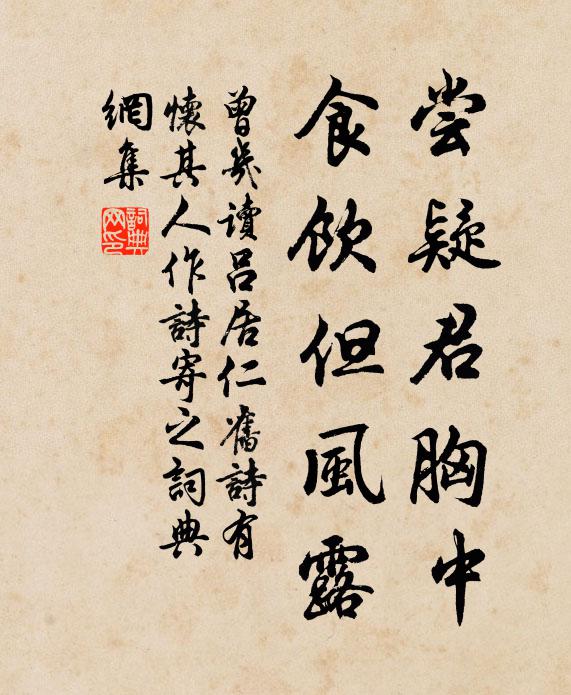 尝疑君胸中
食飲但風露
曾幾讀吕居仁舊詩有
懷其人作詩寄之詞典
網集
詞典網印